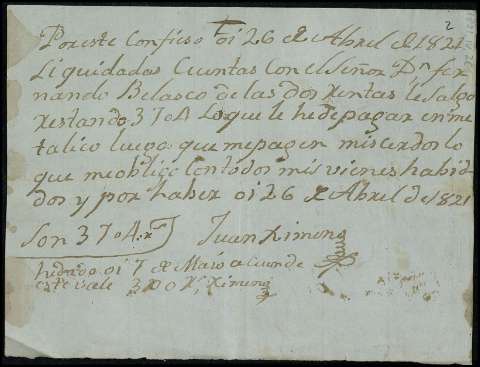 2
Por este Confieso oi 26 de Abril de 1821
Liquidadas Cuentas Con el Señor Dn fer
nando Belasco de las dos rentas le Salgo
restando 370 Lo que le he de pagar en me
talico luego que me pagen mis cerdos lo
que me obligo Con todos mis vienes habid
dos y por haber oi 26 de Abril de 1821
Son 370 Juan Ximeno
oi 7 de Maio a Cuenta de
este vale 300 Ximeno